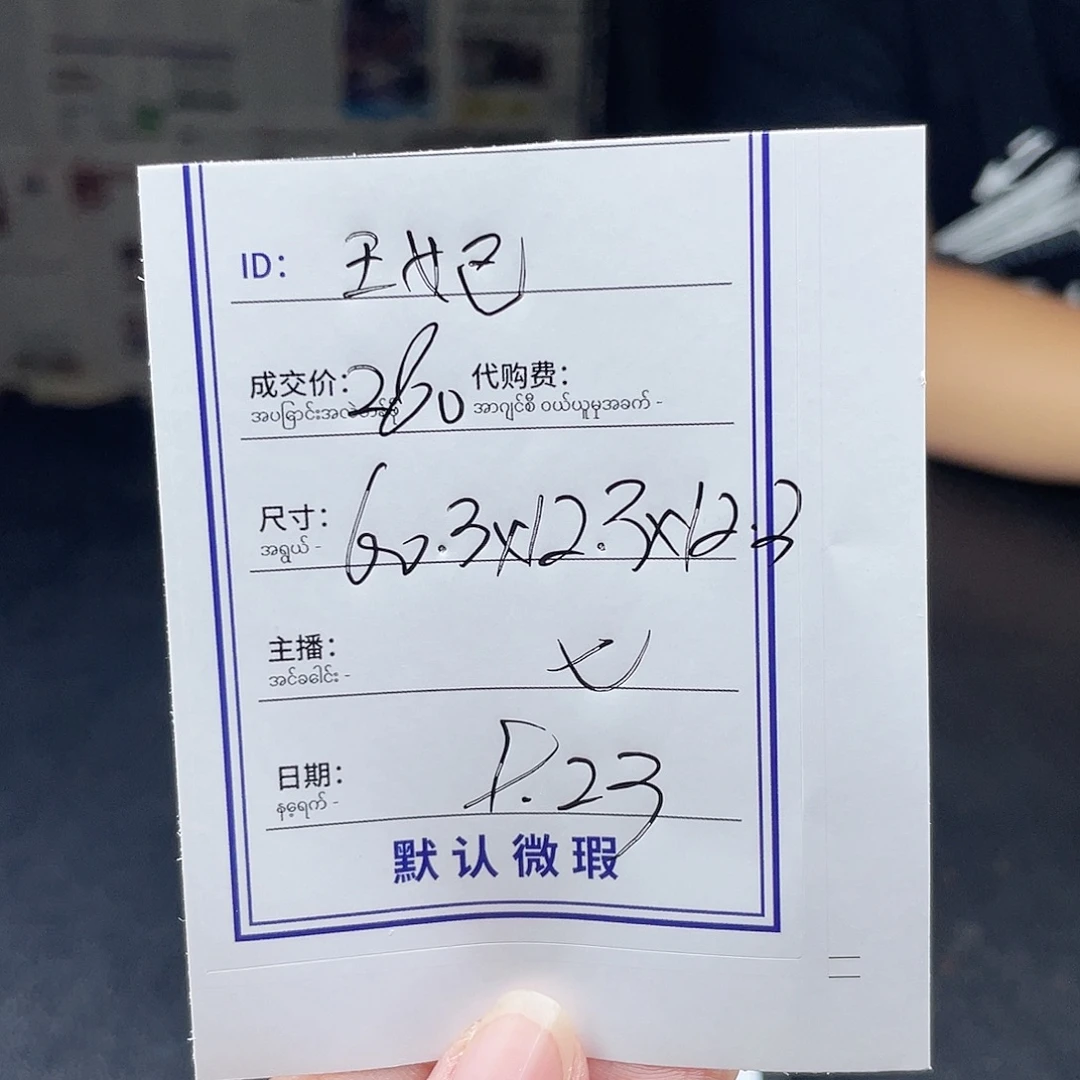 ID： 王妃
成交价：260 代购费：
အပြောင်းအလဲတစ်ခု အာဂျင်စီ ဝယ်ယူမှုအခက် -
尺寸：60.3x12.3x12.3
အရွယ် -
主播：七
အင်ခေါင်း -
日期：P.23
နေ့ရက် -
默认微瑕